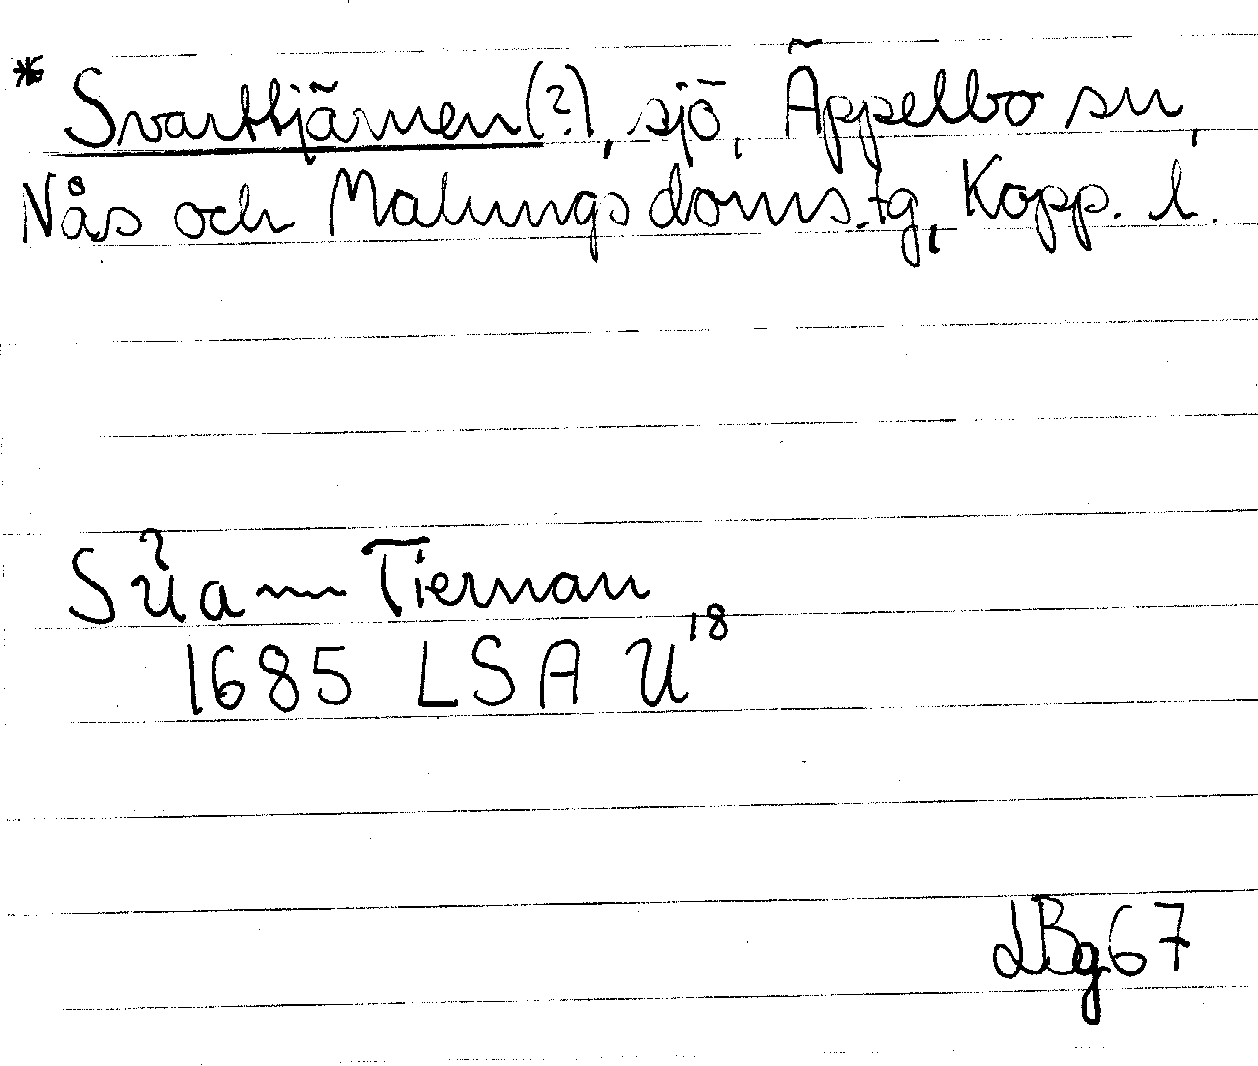 * Svarttjärnen (?), sjö, Äppelbo sn,
Nås och Malungs doms.tg, Kopp. l.
Sŭa~~ Tiernan
1685 LSA U¹⁸
LBg 67